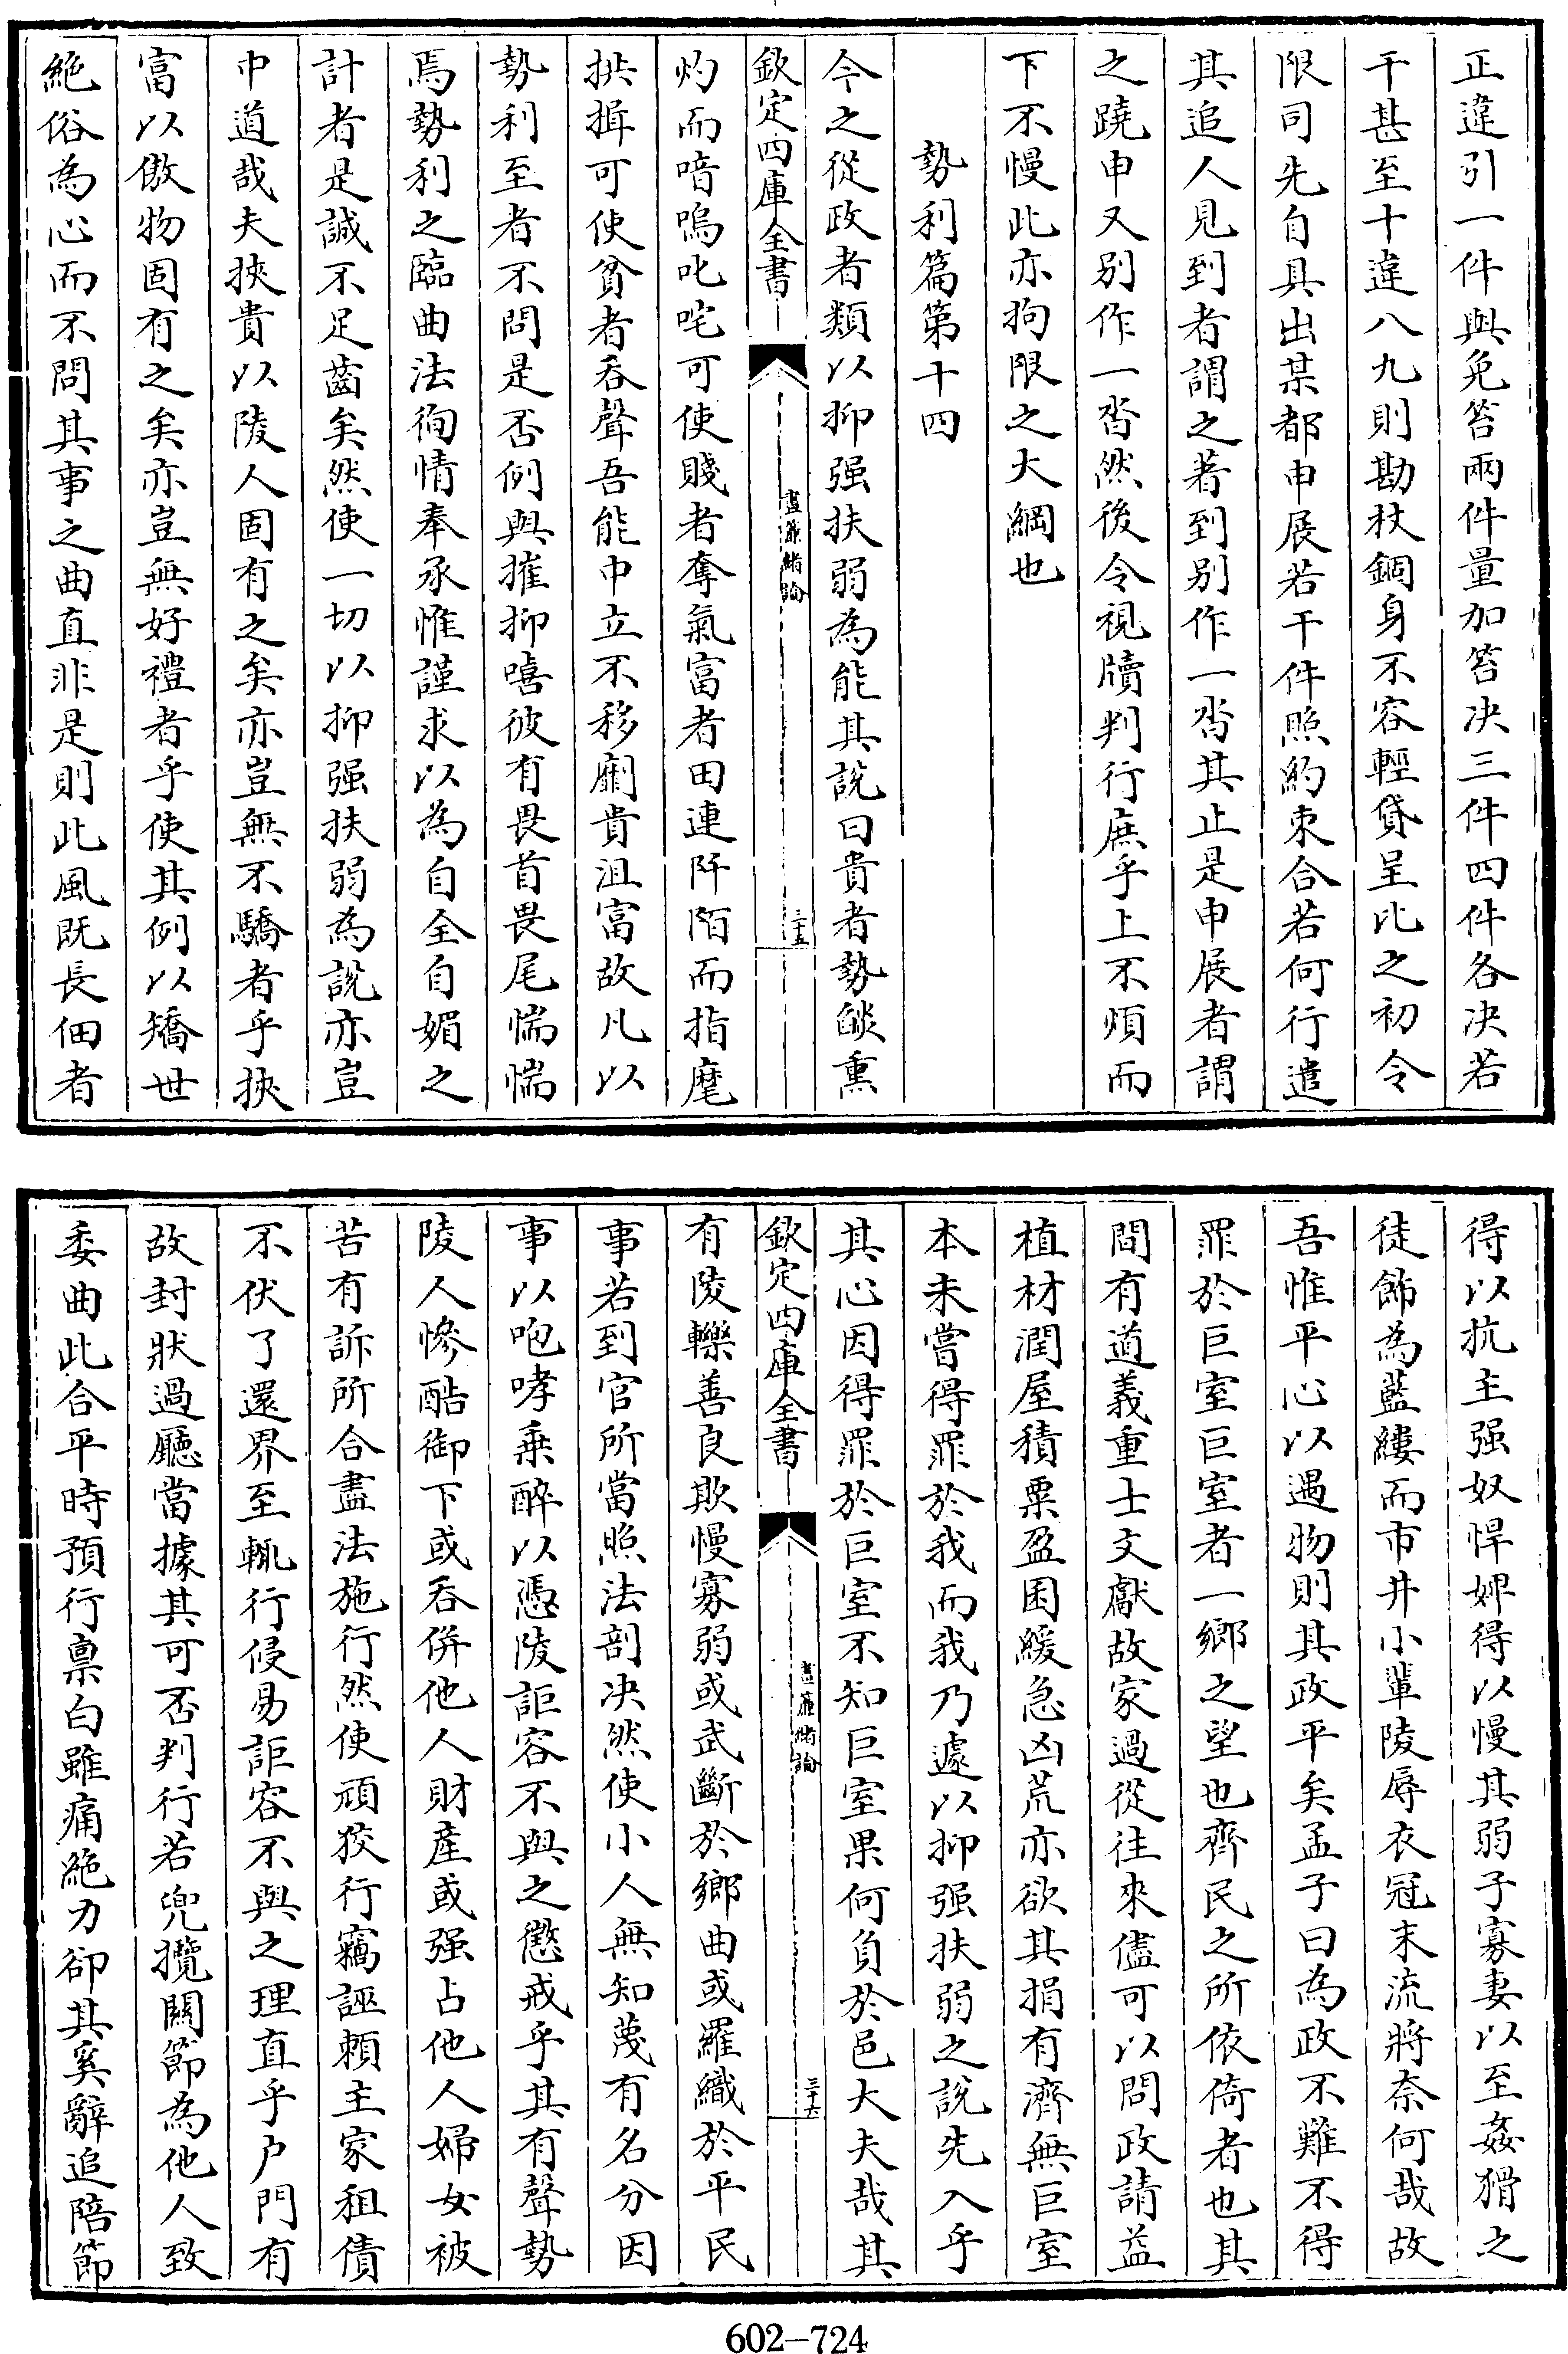 正違引一件與免笞兩件量加笞决三件四件各决若
干甚至十違八九則勘杖錮身不容輕貸呈比之初令
限司先自具出某都申展若干件照約束合若何行遣
其追人見到者謂之著到别作一沓其止是申展者謂
之蹺申又别作一沓然後令視牘判行庶乎上不煩而
下不慢此亦拘限之大綱也
勢利篇第十四
今之從政者類以抑强扶弱為能其説曰貴者勢燄熏
欽定四庫全書
晝簾緒論
三十五
灼而喑嗚叱咤可使賤者奪氣富者田連阡陌而指麾
拱揖可使貧者吞聲吾能中立不移剷貴沮富故凡以
勢利至者不問是否例與摧抑嘻彼有畏首畏尾惴惴
焉勢利之臨曲法徇情奉承惟謹求以為自全自媚之
計者是誠不足齒矣然使一切以抑强扶弱為説亦豈
中道哉夫挾貴以陵人固有之矣亦豈無不驕者乎挾
富以傲物固有之矣亦豈無好禮者乎使其例以矯世
絶俗為心而不問其事之曲直非是則此風既長佃者
得以抗主强奴悍婢得以慢其弱子寡妻以至姦猾之
徒飾為藍縷而市井小輩陵辱衣冠末流將奈何哉故
吾惟平心以遇物則其政平矣孟子曰為政不難不得
罪於巨室巨室者一鄉之望也齊民之所依倚者也其
間有道義重士文獻故家過從往來儘可以問政請益
植材潤屋積粟盈囷緩急凶荒亦欲其捐有濟無巨室
本未嘗得罪於我而我乃遽以抑强扶弱之説先入乎
其心因得罪於巨室不知巨室果何負於邑大夫哉其
欽定四庫全書
晝簾緒論
三十六
有陵轢善良欺慢寡弱或武斷於鄉曲或羅織於平民
事若到官所當照法剖决然使小人無知蔑有名分因
事以咆哮乗醉以慿陵詎容不與之懲戒乎其有聲勢
陵人慘酷御下或吞併他人財産或强占他人婦女被
苦有訴所合盡法施行然使頑狡行竊誣賴主家租債
不伏了還界至輒行侵易詎容不與之理直乎户門有
故封狀過廳當據其可否判行若兜攬關節為他人致
委曲此合平時預行禀白雖痛絶力卻其奚辭追陪節
602-724